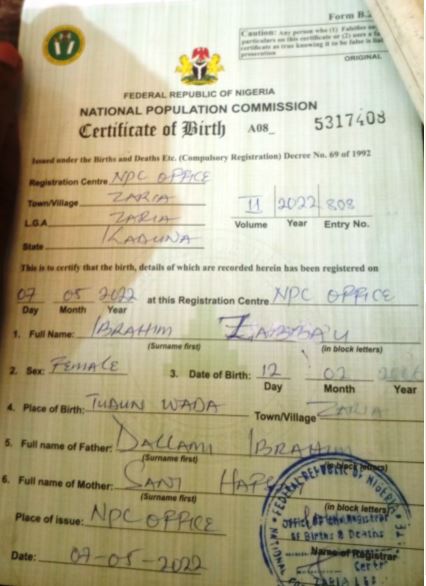 Form B.2
Caution: Any person who (1) Falsifies
particulars on this certificate or (2) uses a
certificate as true knowing it to be false is
prosecution
ORIGINAL
FEDERAL REPUBLIC OF NIGERIA
NATIONAL POPULATION COMMISSION
Certificate of Birth A08_ 5317408
Issued under the Births and Deaths Etc. (Compulsory Registration) Decree No. 69 of 1992
Registration Centre NPC OFFICE
Town/Village ZARIA
11 2022 808
L.G.A ZARIA
Volume Year Entry No.
State KADUNA
This is to certify that the birth, details of which are recorded herein has been registered on
07 05 2022 at this Registration Centre NPC OFFICE
Day Month Year
1. Full Name: IBRAHIM
(Surname first) (in block letters)
2. Sex: FEMALE 3. Date of Birth: 12 02
Day Month Year
4. Place of Birth: TUDUN WADA Town/Village ZARIA
5. Full name of Father: DALLAMI IBRAHIM
(Surname first) (in block letters)
6. Full name of Mother: SANI
(Surname first) (in block letters)
Place of issue: NPC OFFICE
FEDERAL REPUBLIC OF NIGERIA
Office of the Registrar
of Births & Deaths
Name of Registrar
Date: 07-05-2022